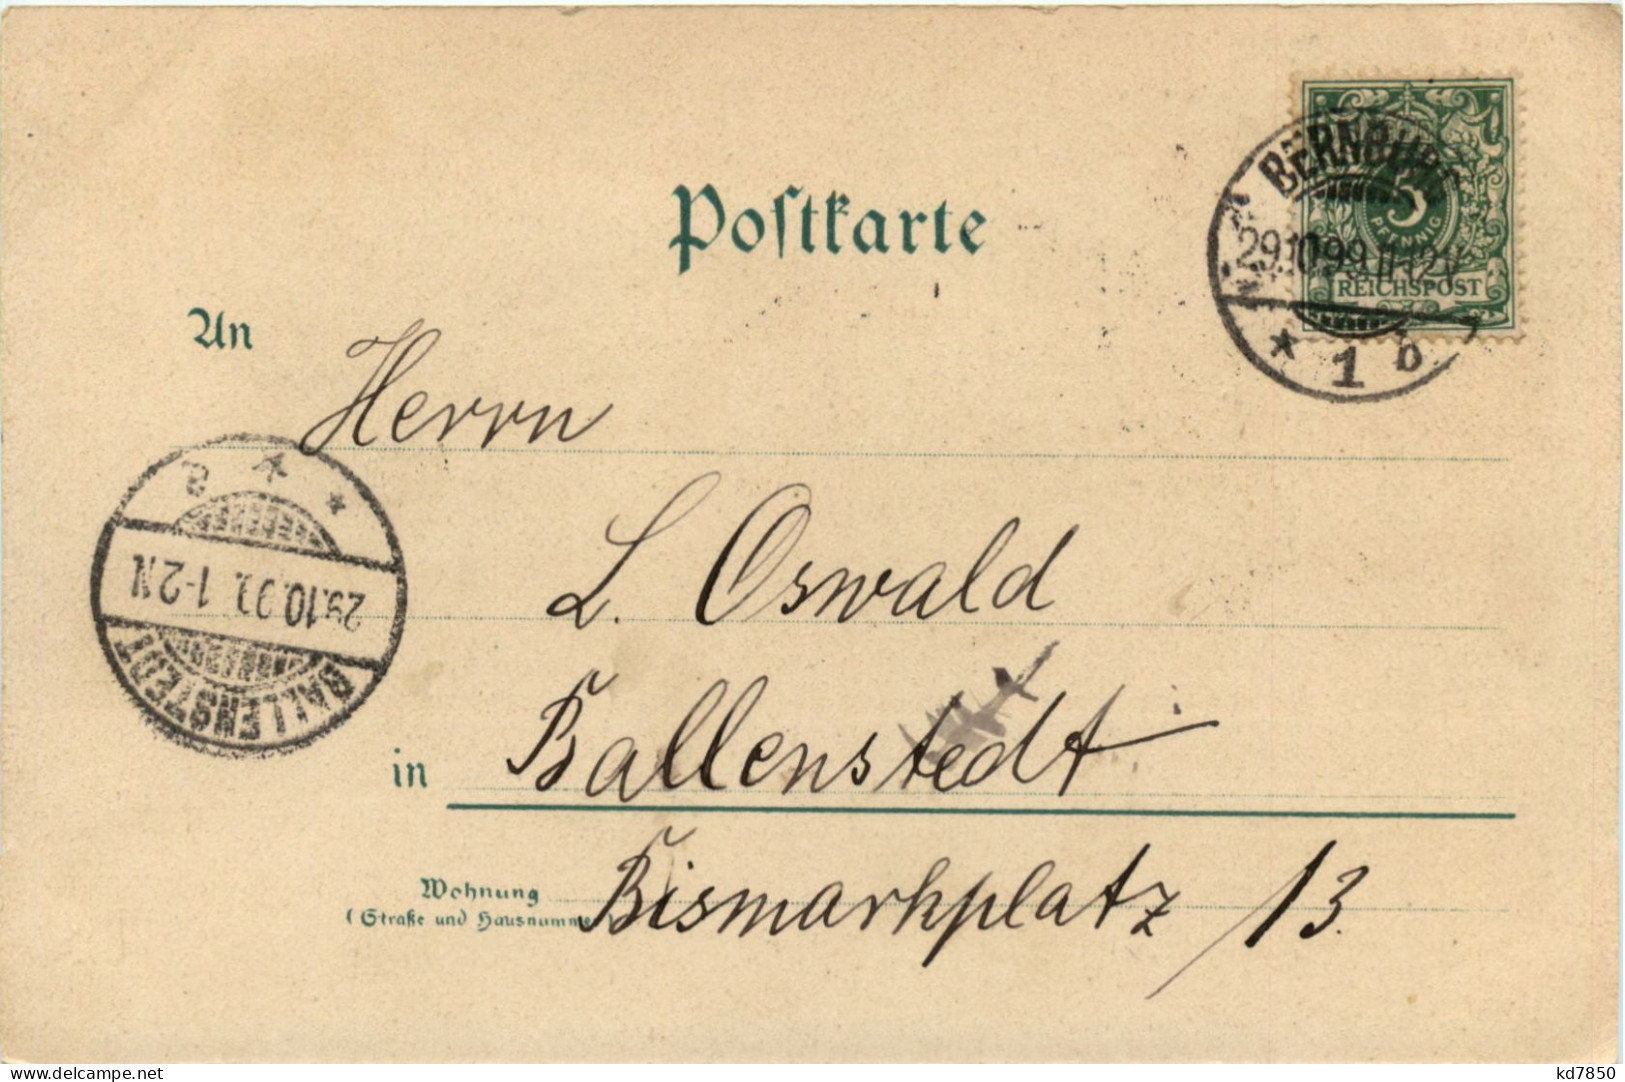 Postkarte
BERNBURG
5
PFENNIG
29.10.99.11-12V
REICHSPOST
* 1 b
An
Herrn
L. Oswald
a
29.10.99. 1-2N
BALLENSTEDT
in Ballenstedt
Wohnung
(Straße und Hausnummer) Bismarkplatz 13.
www.delcampe.net
kd7850